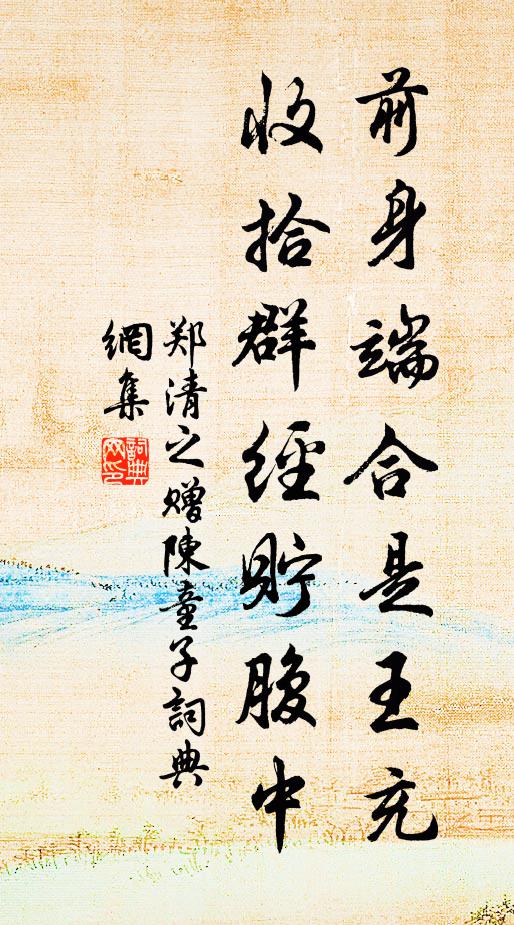 前身端合是王充
收拾群經貯腹中
郑清之赠陳童子詞典
網集
詞典